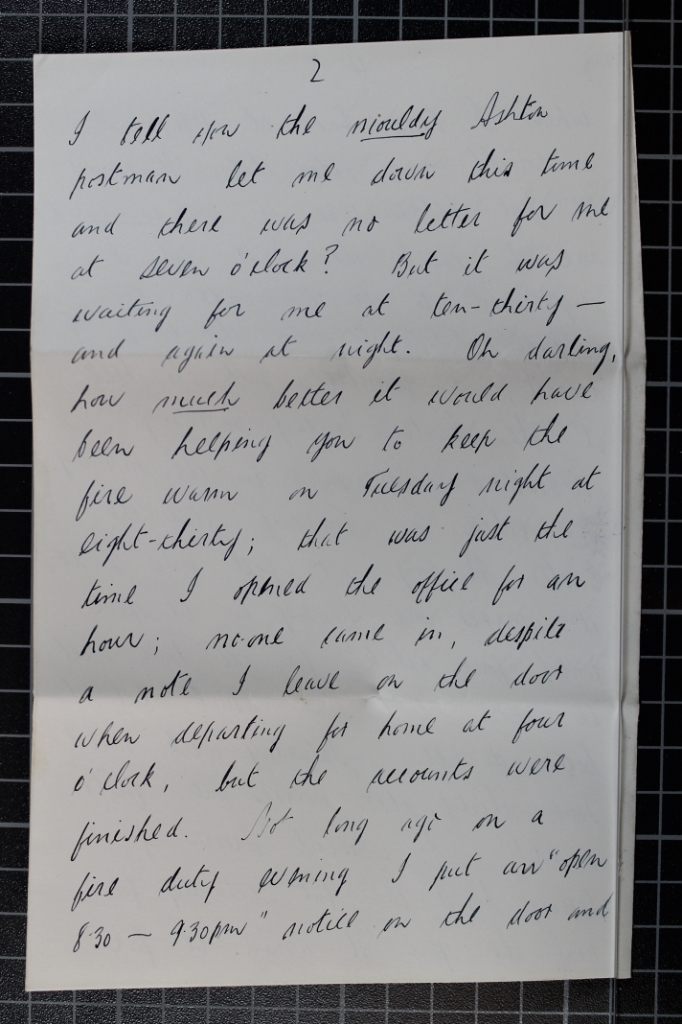 2
I tell you the mouldy Ashton
postman let me down this time
and there was no letter for me
at seven o'clock? But it was
waiting for me at ten-thirty —
and again at night. Oh darling,
how much better it would have
been helping you to keep the
fire warm on Tuesday night at
eight-thirty; that was just the
time I opened the office for an
hour; no-one came in, despite
a note I leave on the door
when departing for home at four
o'clock, but the accounts were
finished. Not long ago on a
fire duty evening I put an "open
8.30 — 9.30pm" notice on the door and